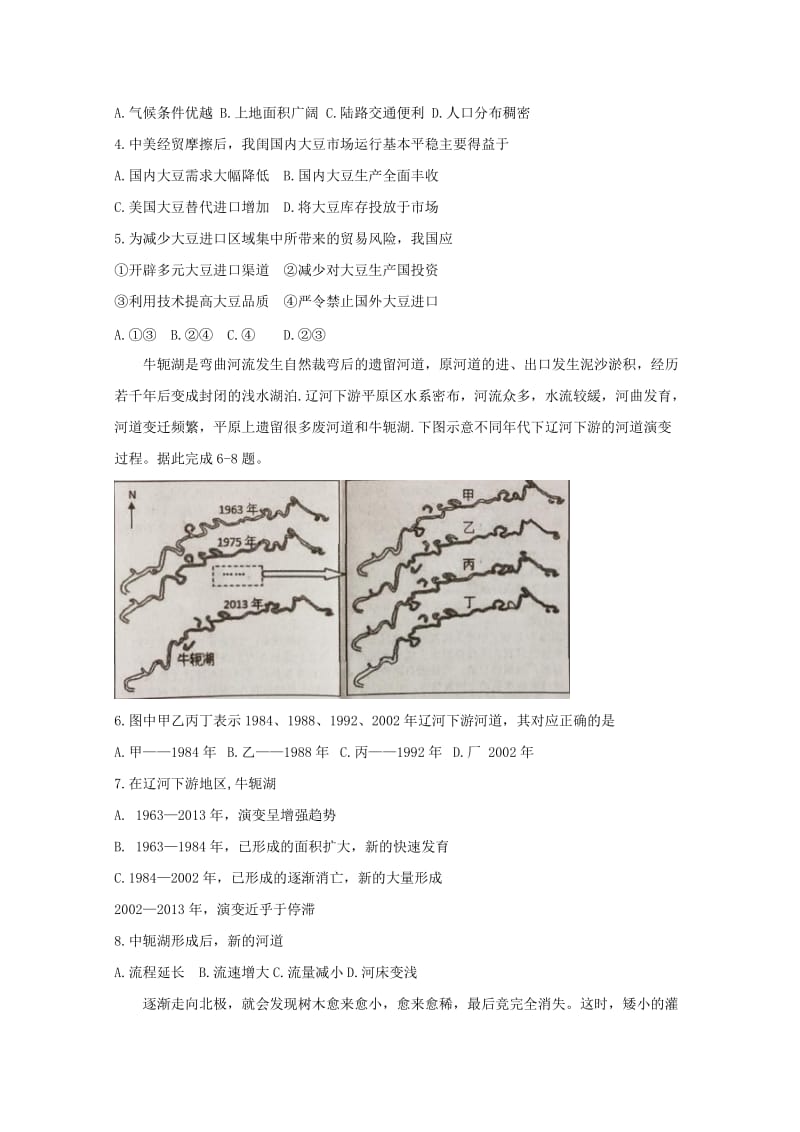 A.气候条件优越 B.上地面积广阔 C.陆路交通便利 D.人口分布稠密
4.中美经贸摩擦后，我闰国内大豆市场运行基本平稳主要得益于
A.国内大豆需求大幅降低 B.国内大豆生产全面丰收
C.美国大豆替代进口增加 D.将大豆库存投放于市场
5.为减少大豆进口区域集中所带来的贸易风险，我国应
①开辟多元大豆进口渠道 ②减少对大豆生产国投资
③利用技术提高大豆品质 ④严令禁止国外大豆进口
A.①③ B.②④ C.④ D.②③
牛轭湖是弯曲河流发生自然裁弯后的遗留河道，原河道的进、出口发生泥沙淤积，经历
若干年后变成封闭的浅水湖泊.辽河下游平原区水系密布，河流众多，水流较緩，河曲发育，
河道变迁频繁，平原上遗留很多废河道和牛轭湖.下图示意不同年代下辽河下游的河道演变
过程。据此完成 6-8 题。
N
1963 年
1975 年
……
2013 年
牛轭湖
甲
乙
丙
丁
6.图中甲乙丙丁表示 1984、1988、1992、2002 年辽河下游河道，其对应正确的是
A.甲——1984 年 B.乙——1988 年 C.丙——1992 年 D.厂 2002 年
7.在辽河下游地区,牛轭湖
A. 1963—2013 年，演变呈增强趋势
B. 1963—1984 年，已形成的面积扩大，新的快速发育
C.1984—2002 年，已形成的逐渐消亡，新的大量形成
2002—2013 年，演变近乎于停滞
8.中轭湖形成后，新的河道
A.流程延长 B.流速增大 C.流量减小 D.河床变浅
逐渐走向北极，就会发现树木愈来愈小，愈来愈稀，最后竞完全消失。这时，矮小的灌